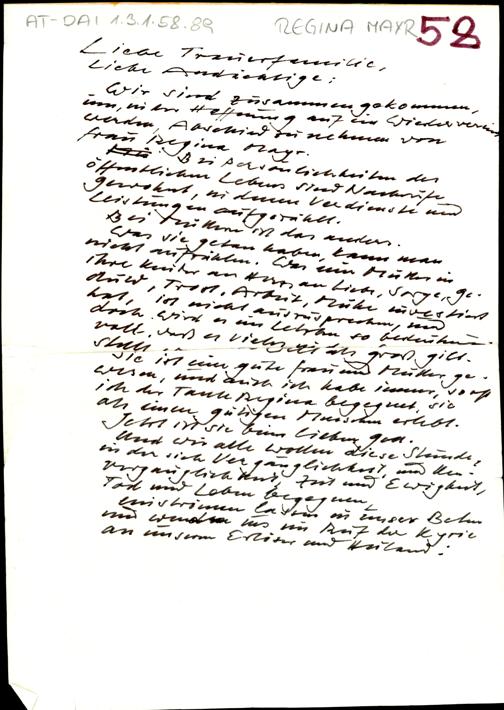 AT-DAI 1.3.1.58.89 REGINA MAYR 58
Liebe Trauerfamilie,
liebe Andächtige:
Wir sind zusammengekommen,
um, in der Hoffnung auf ein Wiederverein
werden, Abschied zu nehmen von
Frau Regina Mayr.
Bei Persönlichkeiten des
öffentlichen Lebens sind Nachrufe
gewohnt, in denen Verdienste und
Leistungen aufgezählt.
Bei Müttern ist das anders.
Was sie getan haben, kann man
nicht aufzählen. Was eine Mutter in
ihre Kinder an Herz, an Liebe, Sorge, Ge-
duld, Trost, Arbeit, Mühe investiert
hat, ist nicht auszusprechen, und
doch wird es im Leben so
voll, daß es vielzeit als groß gilt.
Sie ist eine gute Frau und Mutter ge-
wesen, und auch ich habe immer, so oft
ich der Tante Regina begegnet, sie
als einen gütigen Menschen erlebt.
Jetzt ist sie beim lieben Gott.
Und wir alle wollen diese Stunde,
in der sich Vergänglichkeit und Un-
vergänglichkeit, Zeit und Ewigkeit,
Tod und Leben begegnen,
einströmen lassen in unser Beten
und wenden uns im Ruf der Kyrie
an unsern Erlöser und Heiland: